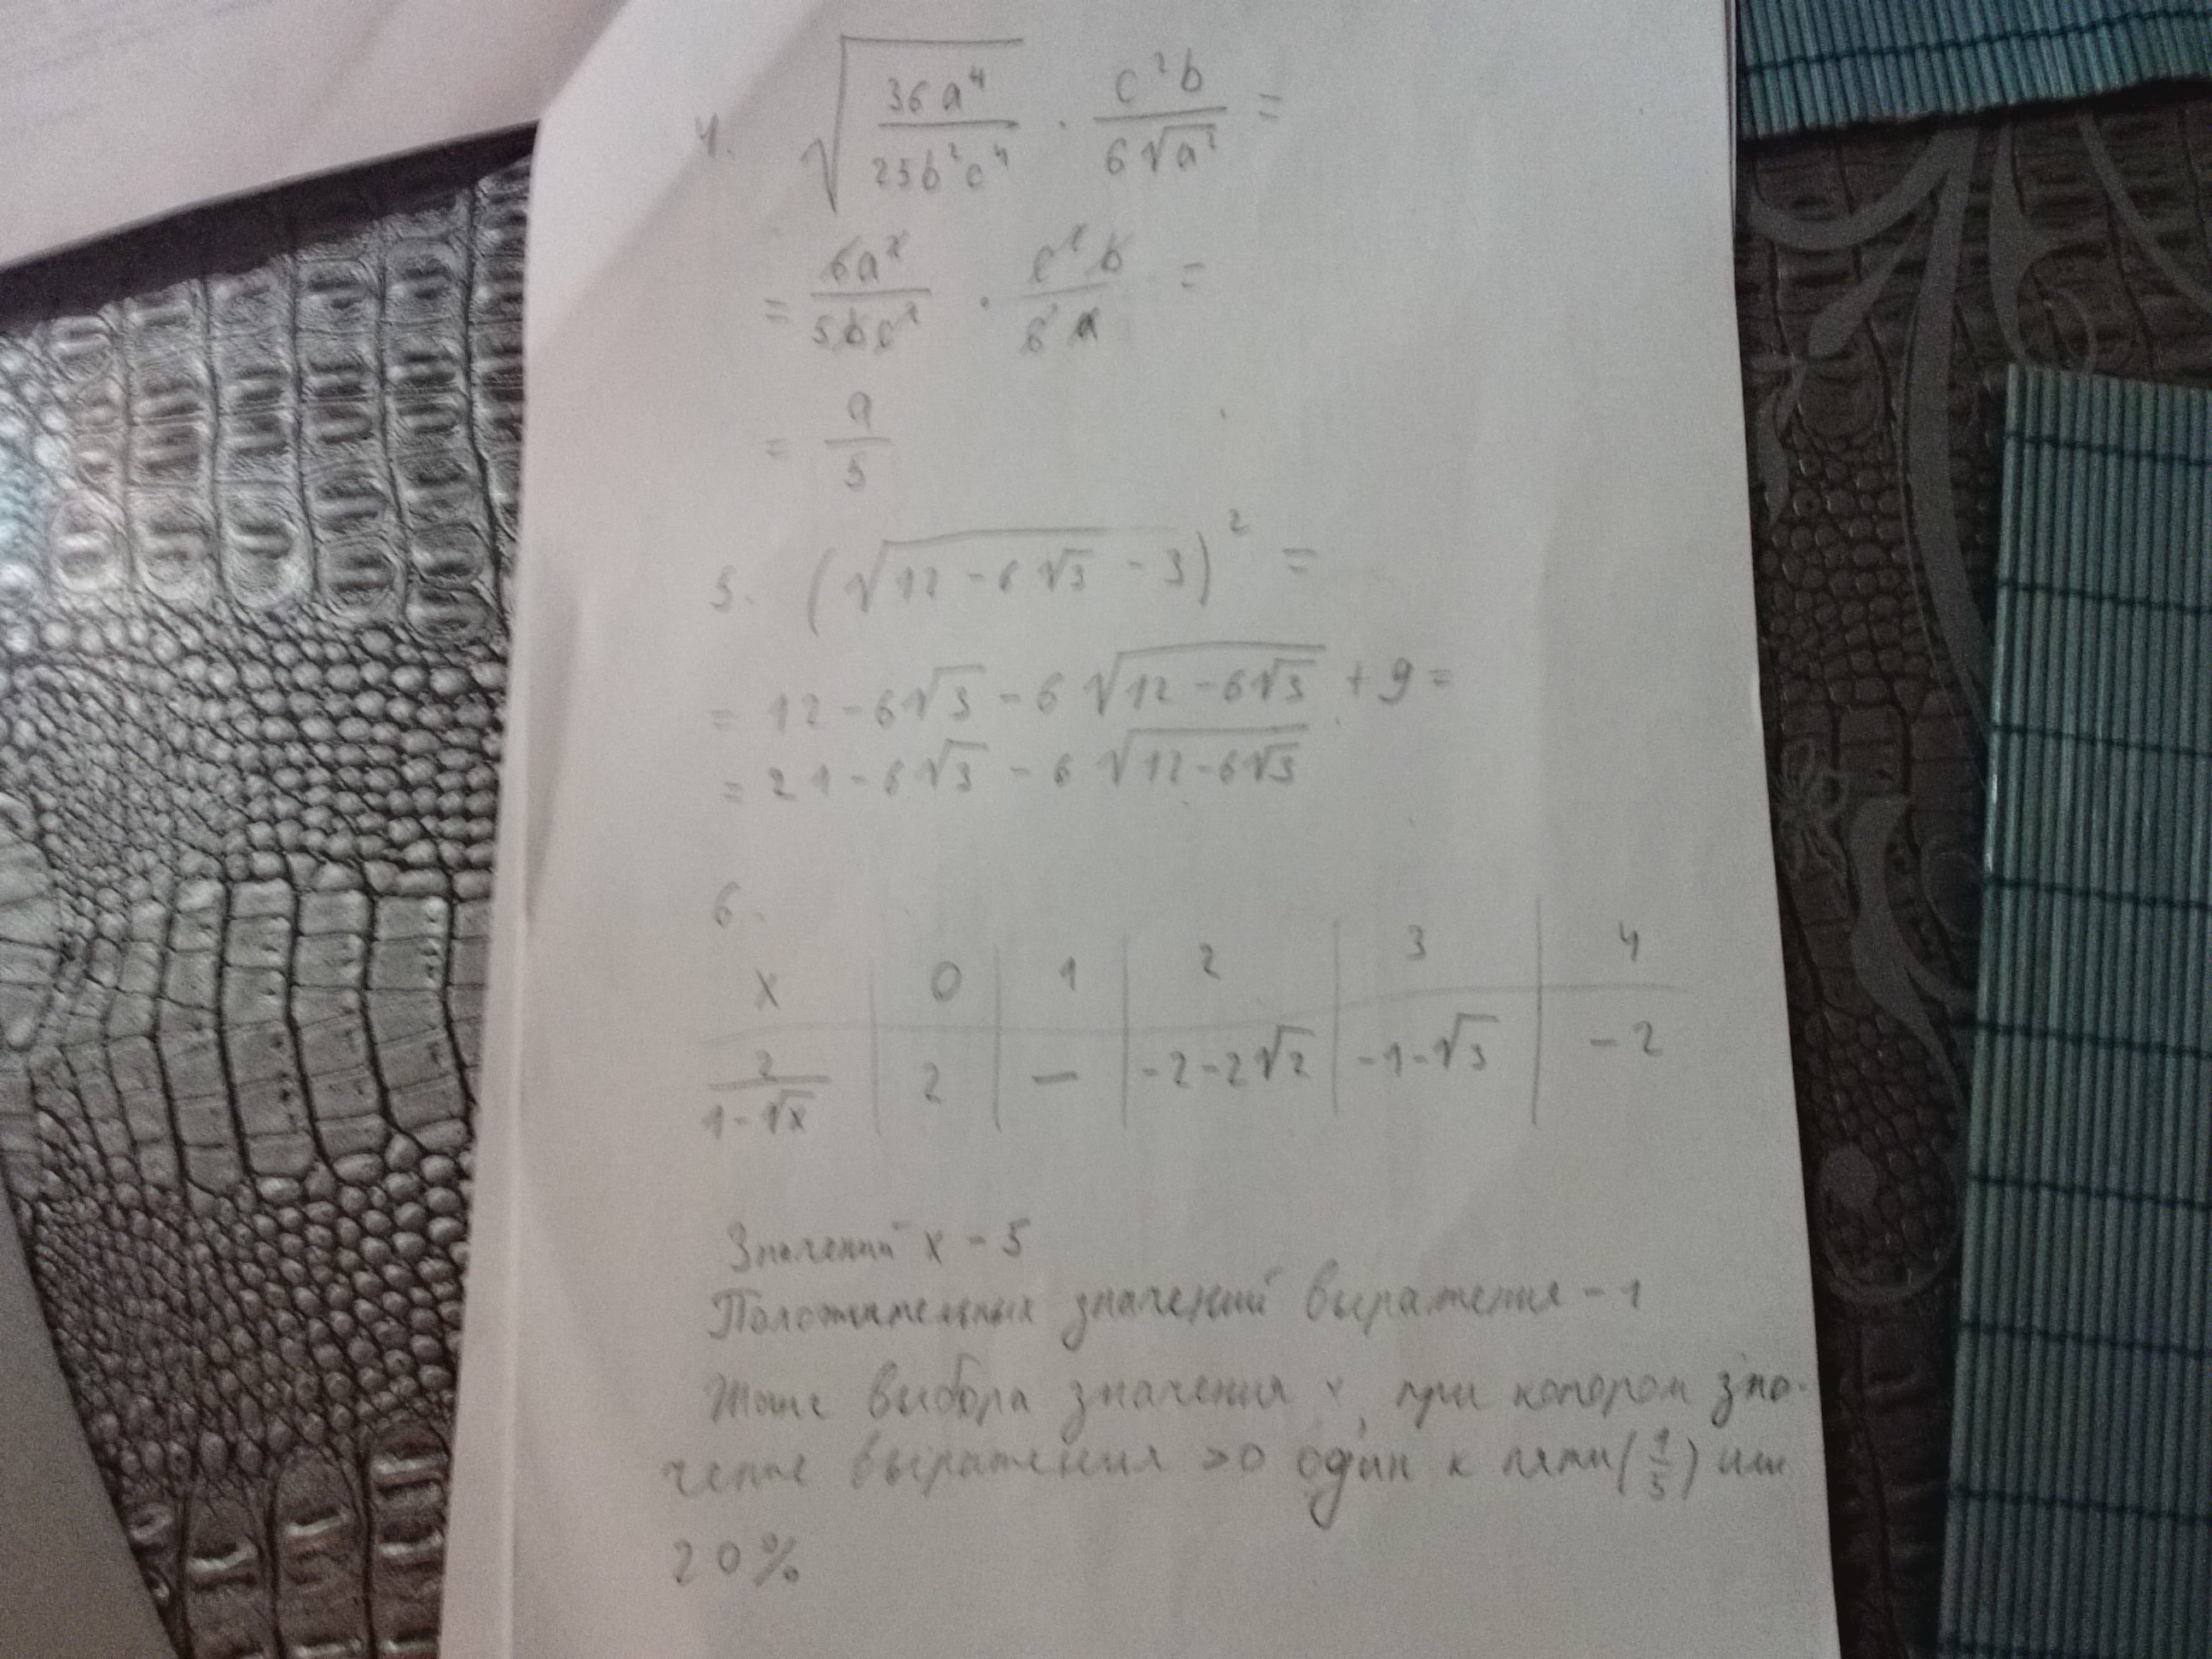 4. √(36a⁴/25b²c⁴) · c²b/6√a² =
= 6a²/5bc² · c²b/6a =
= a/5
5. (√(12 - 6√3 - 3))² =
= 12 - 6√3 - 6√(12 - 6√3) + 9 =
= 21 - 6√3 - 6√(12 - 6√3)
6.
x | 0 | 1 | 2 | 3 | 4
2/(1-√x) | 2 | — | -2-2√2 | -1-√3 | -2
Значений x - 5
Положительных значений выражения - 1
выбора значения x, при котором зна-
чение выражения >0 один к пяти (1/5) или
20%